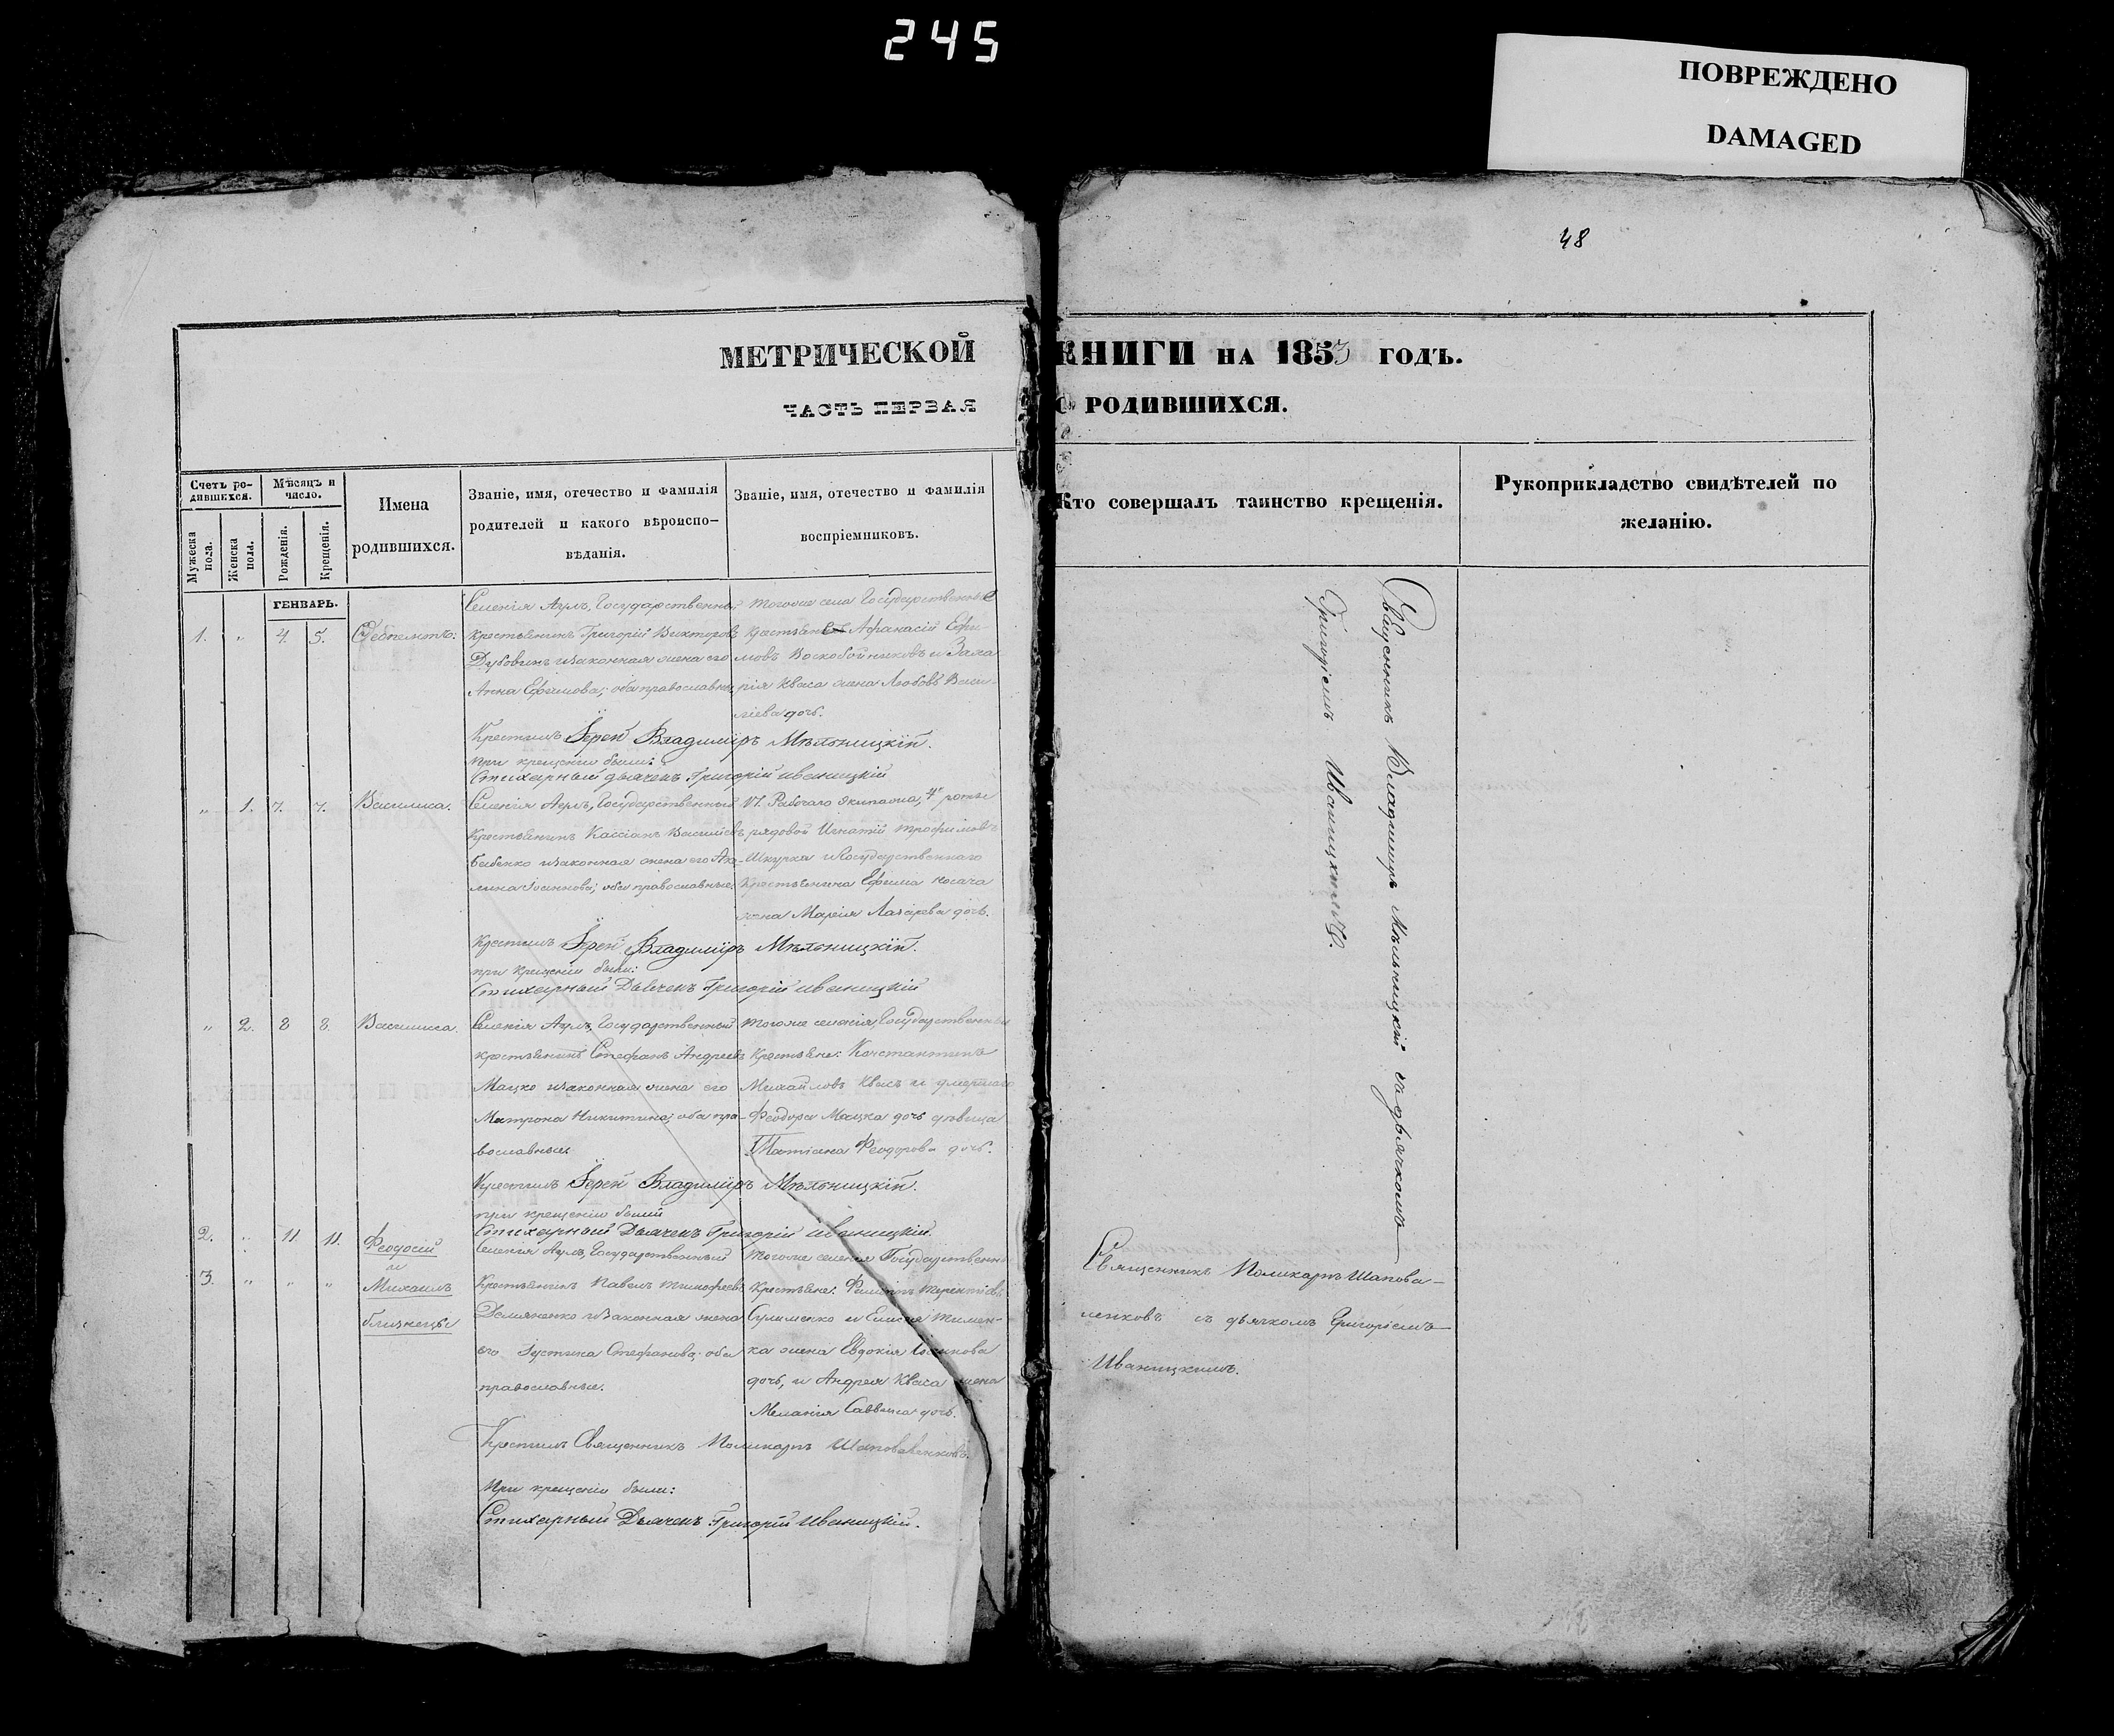 245
ПОВРЕЖДЕНО
DAMAGED
48
МЕТРИЧЕСКОЙ КНИГИ НА 1853 ГОДЪ.
ЧАСТЬ ПЕРВАЯ О РОДИВШИХСЯ.
Счетъ ро-
дившихся.
Мужеска пола.
Женска пола.
Мѣсяцъ и
число.
Рожденія.
Крещенія.
Имена
родившихся.
Званіе, имя, отечество и фамилія
родителей и какого вѣроиспо-
вѣданія.
Званіе, имя, отечество и фамилія
воспріемниковъ.
Кто совершалъ таинство крещенія.
Рукоприкладство свидѣтелей по
желанію.
ГЕНВАРЬ.
1. " 4. 5.
Селенія Аулъ, Государственный
крестьянинъ Григорій Викторовъ
Дубовикъ и законная жена его
Анна Ефимова; оба православные
тогоже села Государственные
Афанасій Ефи-
мовъ Воскобойниковъ и Заха
рія Кваса жена Любовь Васи-
ліева дочь.
Крестилъ Іерей Владиміръ Мѣльницкій.
при крещеніи были:
Стихарный дьячекъ Григорій Иваницкій
" 1. 7. 7. Василиса.
Селенія Аулъ, Государственный
Крестьянинъ Кассіанъ Васильевъ
Бабенко и законная жена его Аку-
лина Іоаннова; оба православные
VI. Рабочаго Экипажа, 4й роты
рядовой Игнатій Трофимовъ
Шкурка и Государственнаго
Крестьянина Ефима Носача
жена Марія Лазарева дочь.
Крестилъ Іерей Владиміръ Мѣльницкій.
при крещеніи были:
Стихарный Дьячекъ Григорій Иваницкій
" 2. 8 8. Василиса.
Селенія Аулъ, Государственный
крестьянинъ Стефанъ Андреевъ
Мацко и законная жена его
Матрона Никитина; оба пра-
вославные.
тогоже селенія, Государственные
Крестьяне: Константинъ
Михайловъ Квасъ и умершаго
Феодора Мацка дочь дѣвица
Татіана Феодорова дочь.
Крестилъ Іерей Владиміръ Мѣльницкій.
при крещеніи были
Стихарный Дьячекъ Григорій Иваницкій.
2. " 11. 11. Феодосій
и
3. " " " Михаилъ
близнецы
Селенія Аулъ, Государственный
Крестьянинъ Павелъ Тимофеевъ
Демяненко и законная жена
его Іустина Стефанова; оба
православные.
тогоже селенія Государственные
Крестьяне: Филиппъ Терентіевъ
Сулименко и Тимен-
ка жена Евдокія Іоаннова
дочь, и Андрея Кваса жена
Меланія Саввина дочь.
Крестилъ Священникъ Поликарпъ Шаповаленковъ.
При крещеніи были:
Стихарный Дьячекъ Григорій Иваницкій.
Священникъ Владиміръ Мѣльницкій съ дьячкомъ
Григоріемъ Иваницкимъ.
Священникъ Поликарпъ Шапова-
ленковъ съ дьячкомъ Григоріемъ
Иваницкимъ.